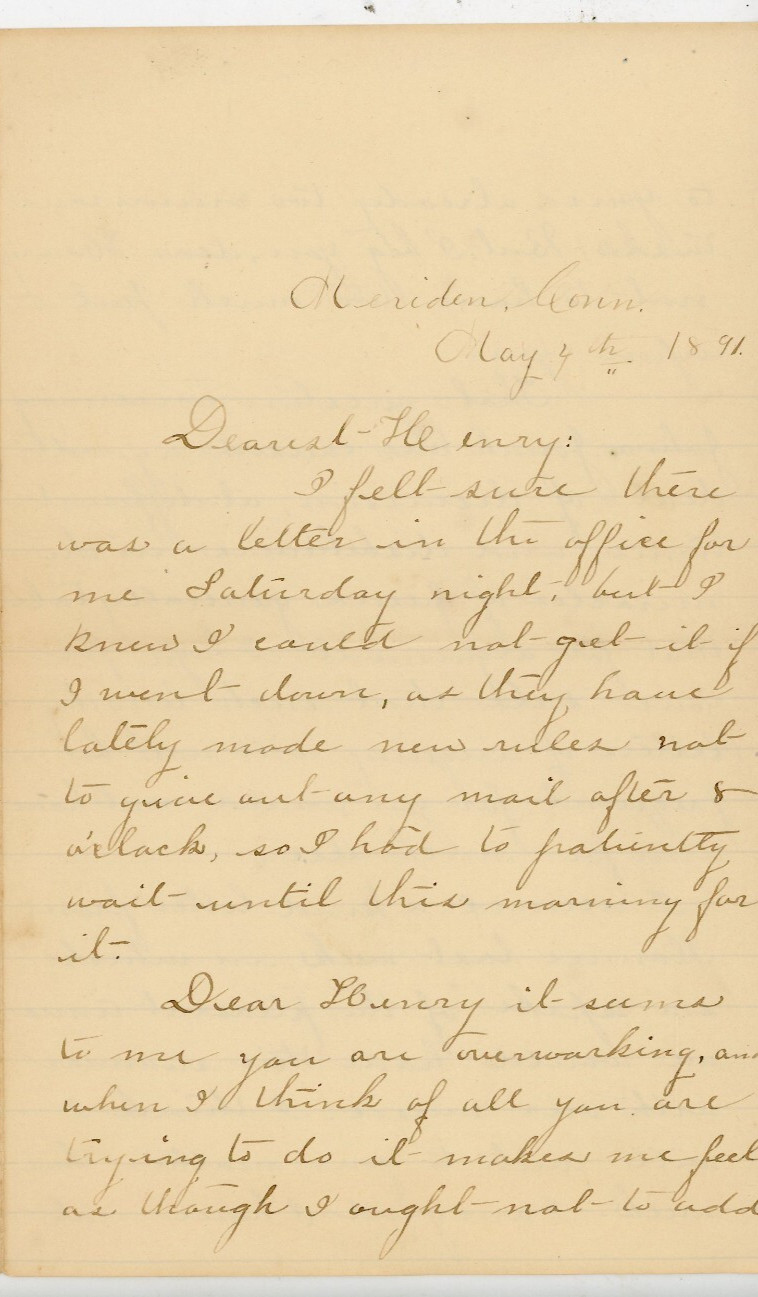 Meriden, Conn.
May 4th. 1891.
Dearest Henry:
I felt sure there
was a letter in the office for
me Saturday night, but I
knew I could not get it if
I went down, as they have
lately made new rules not
to give out any mail after 8
o'clock, so I had to patiently
wait until this morning for
it.
Dear Henry it seems
to me you are overworking, and
when I think of all you are
trying to do it makes me feel
as though I ought not to add